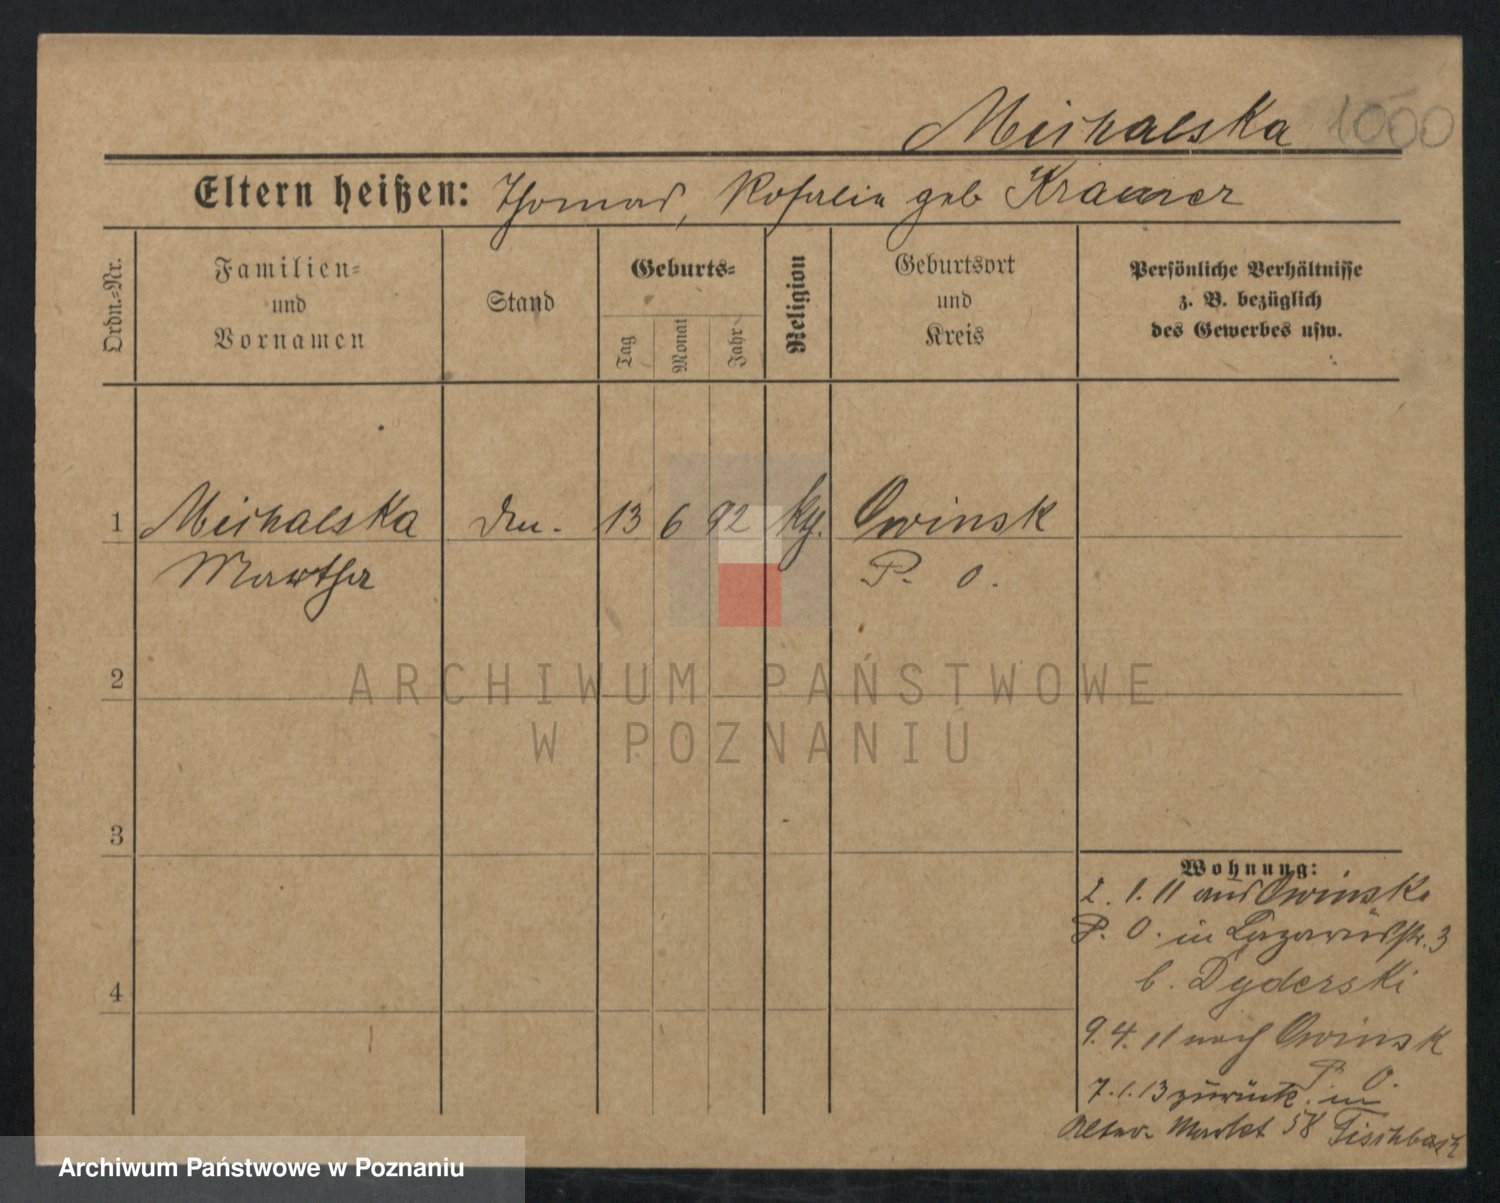 Michalska 1000
Eltern heißen: Thomas, Rosalie geb Kramer
Ordn.-Nr.
Familien-
und
Vornamen
Stand
Geburts-
Tag
Monat
Jahr
Religion
Geburtsort
und
Kreis
Persönliche Verhältnisse
z. B. bezüglich
des Gewerbes usw.
1 Michalska 13 6 92 Owinsk
Martha P. O.
2
3
4
Wohnung:
2. 1. 11 aus Owinska
P. O. in Lazarusstr. 3
b. Dyderski
9. 4. 11 nach Owinsk
P. O.
7. 1. 13 zurück in
Alter Markt 58 Fischbach
ARCHIWUM PAŃSTWOWE
W POZNANIU
Archiwum Państwowe w Poznaniu